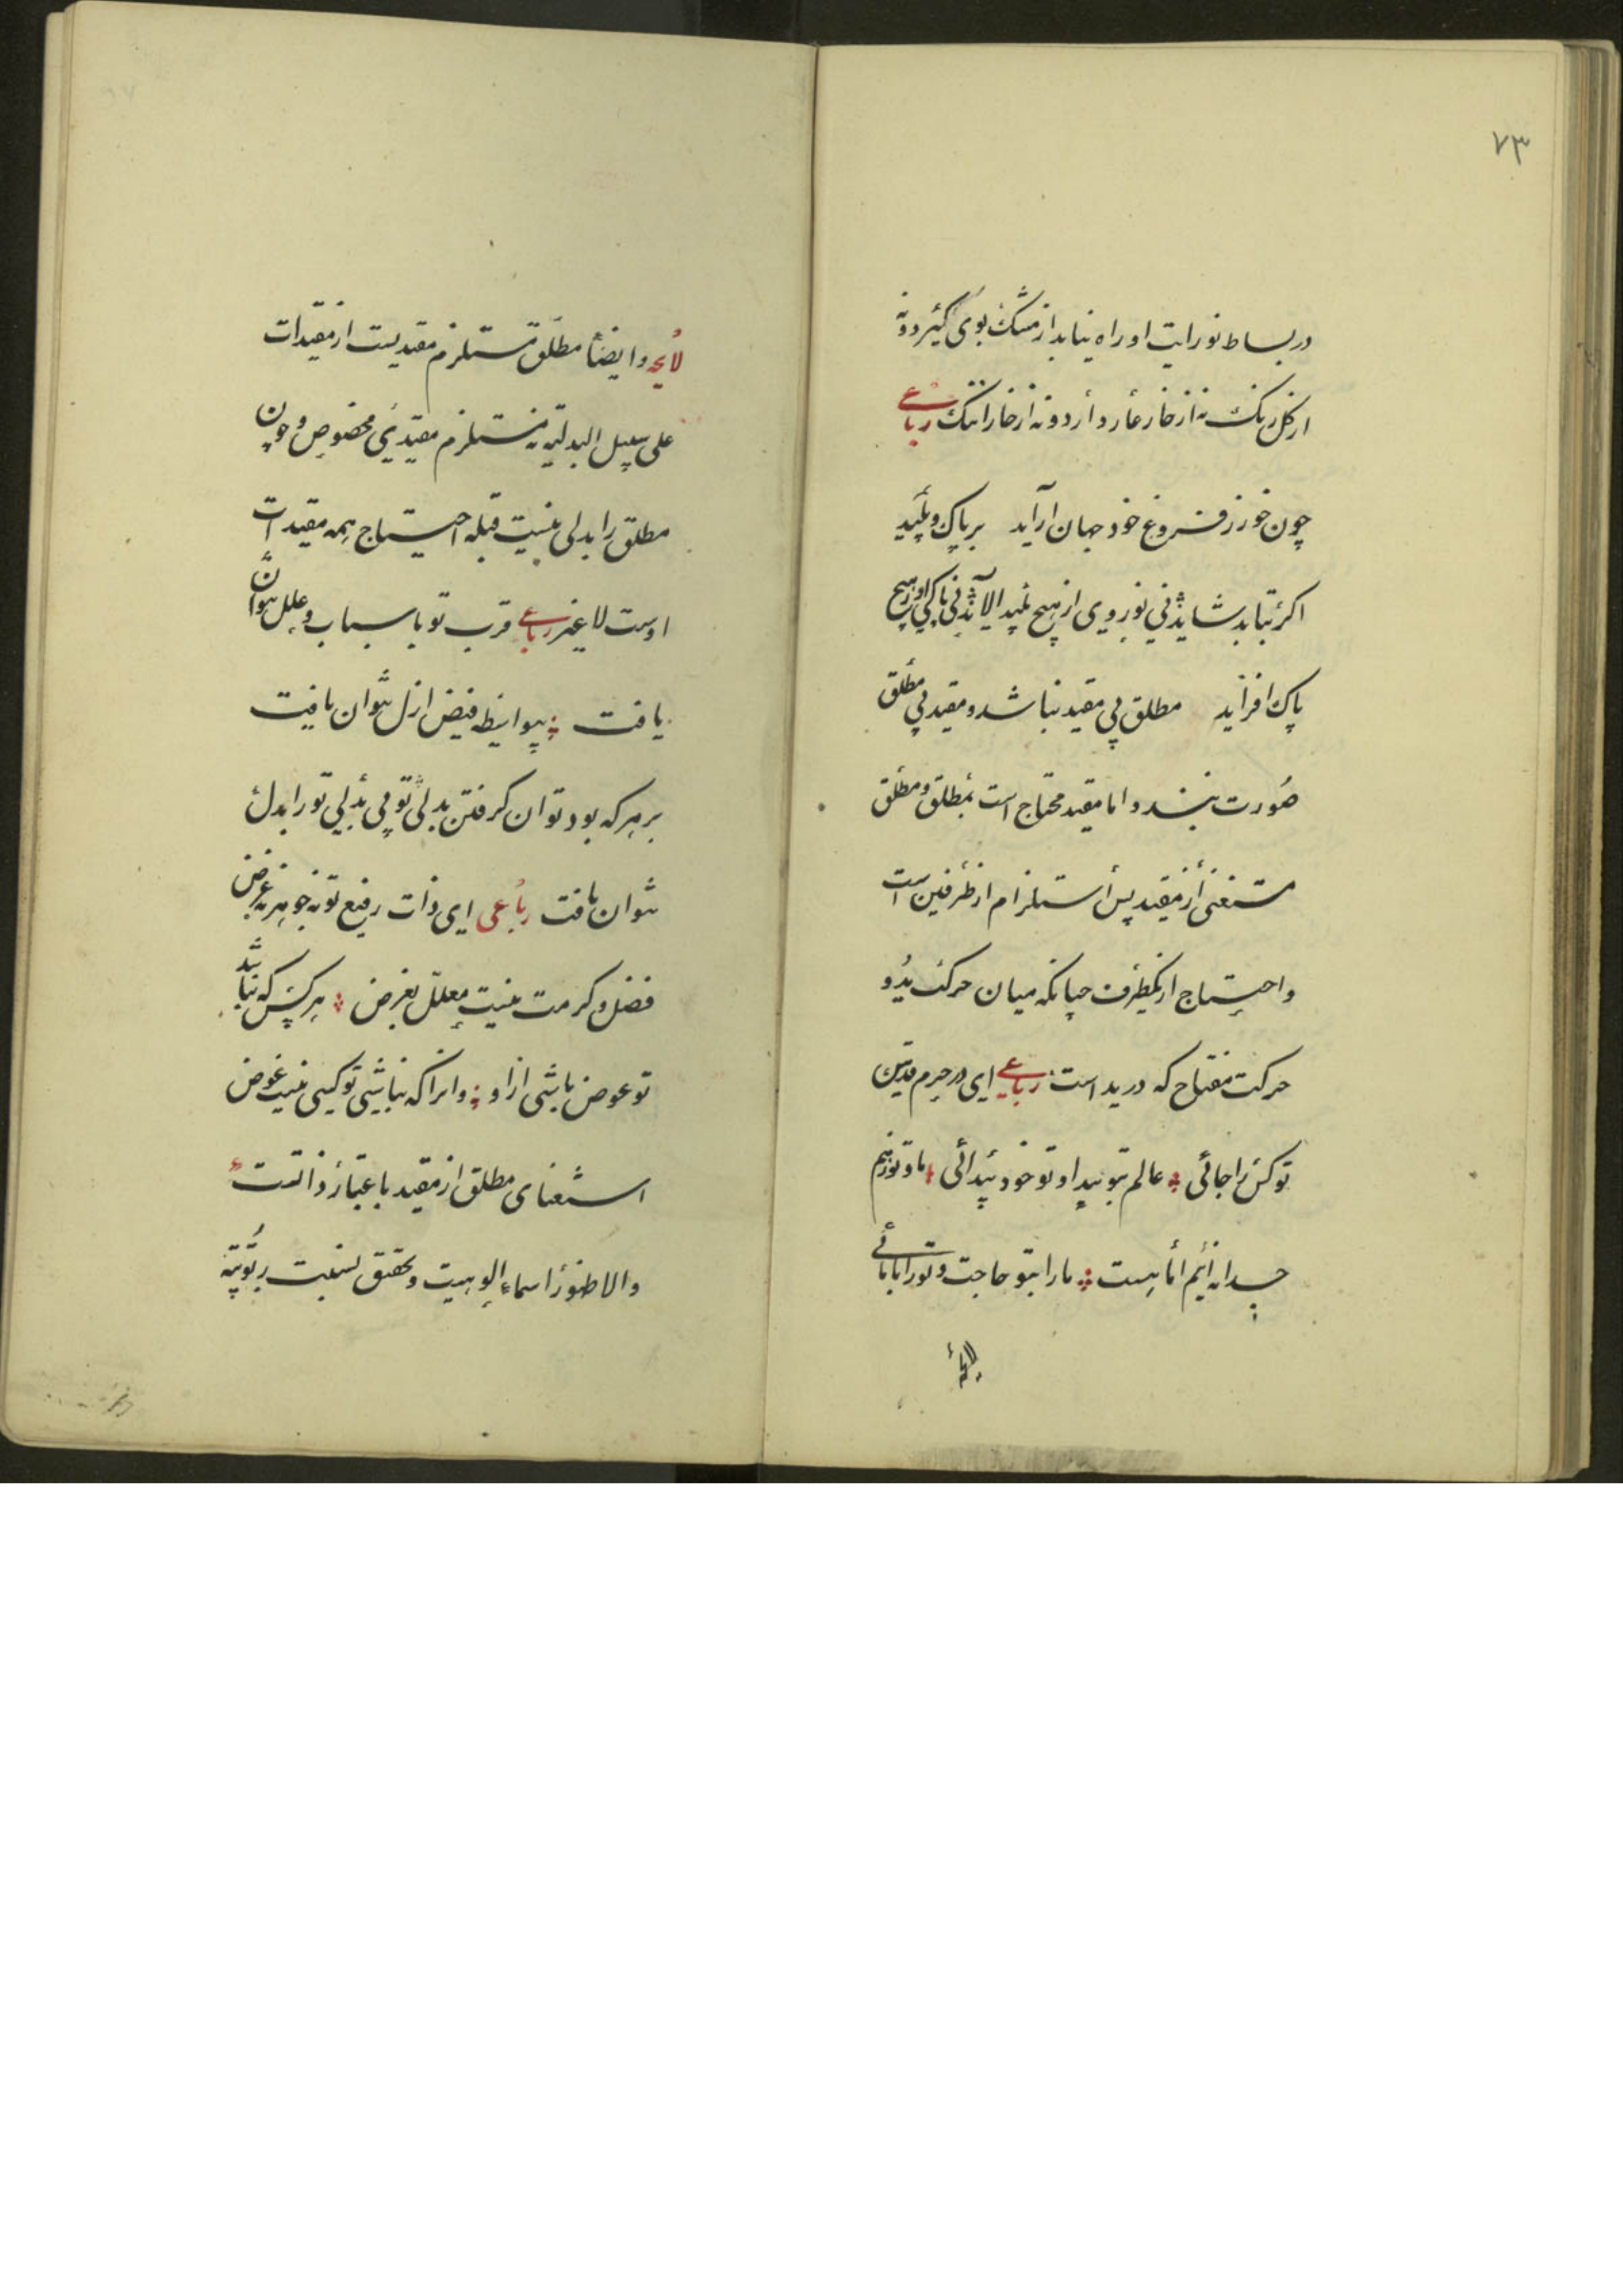 ۷۳
در بساط نورانیت او راه نیابد از مشک بوی گیرد و نه
از گل رنگ نه از خار عار دارد و نه از خارا ننگ رباعی
چون خور ز فروغ خود جهان آراید بر پاک و پلید
اگر بتابد شاید نی نور وی از هیچ پلید آلاید نی پاکی او ز هیچ
پاک افزاید مطلق بی مقید نباشد و مقید بی مطلق
صورت نبندد اما مقید محتاج است بمطلق و مطلق
مستغنی از مقید پس استلزام از طرفین است
و احتیاج از یکطرف چنانکه میان حرکت ید و
حرکت مفتاح که در ید است رباعی ای در حرم قدس
تو کس را جائی عالم بتو پیدا و تو خود پیدائی ما و تو ز هم
جدا نه ایم اما هست ما را بتو حاجت و تو را با ما نی
لایحه
لایحه و ایضا مطلق مستلزم مقدیست از مقیدات
علی سبیل البدلیه نه مستلزم مقیدی مخصوص و چون
مطلق را بدلی نیست قبله احتیاج همه مقیدات
اوست لا غیر رباعی قرب تو باسباب و علل نتوان
یافت بیواسطه فیض ازل نتوان یافت
بر هر که بود توان گرفتن بدلی تو بی بدلی تو را بدل
نتوان یافت رباعی ای ذات رفیع تو نه جوهر نه عرض
فضل و کرمت نیست معلل بغرض هر کس که نباشد
تو عوض باشی از او وانرا که نباشی تو کسی نیست عوض
استغنای مطلق از مقید باعتبار ذاتست
والا ظهور اسماء الوهیت و تحقق نسبت ربوبیته